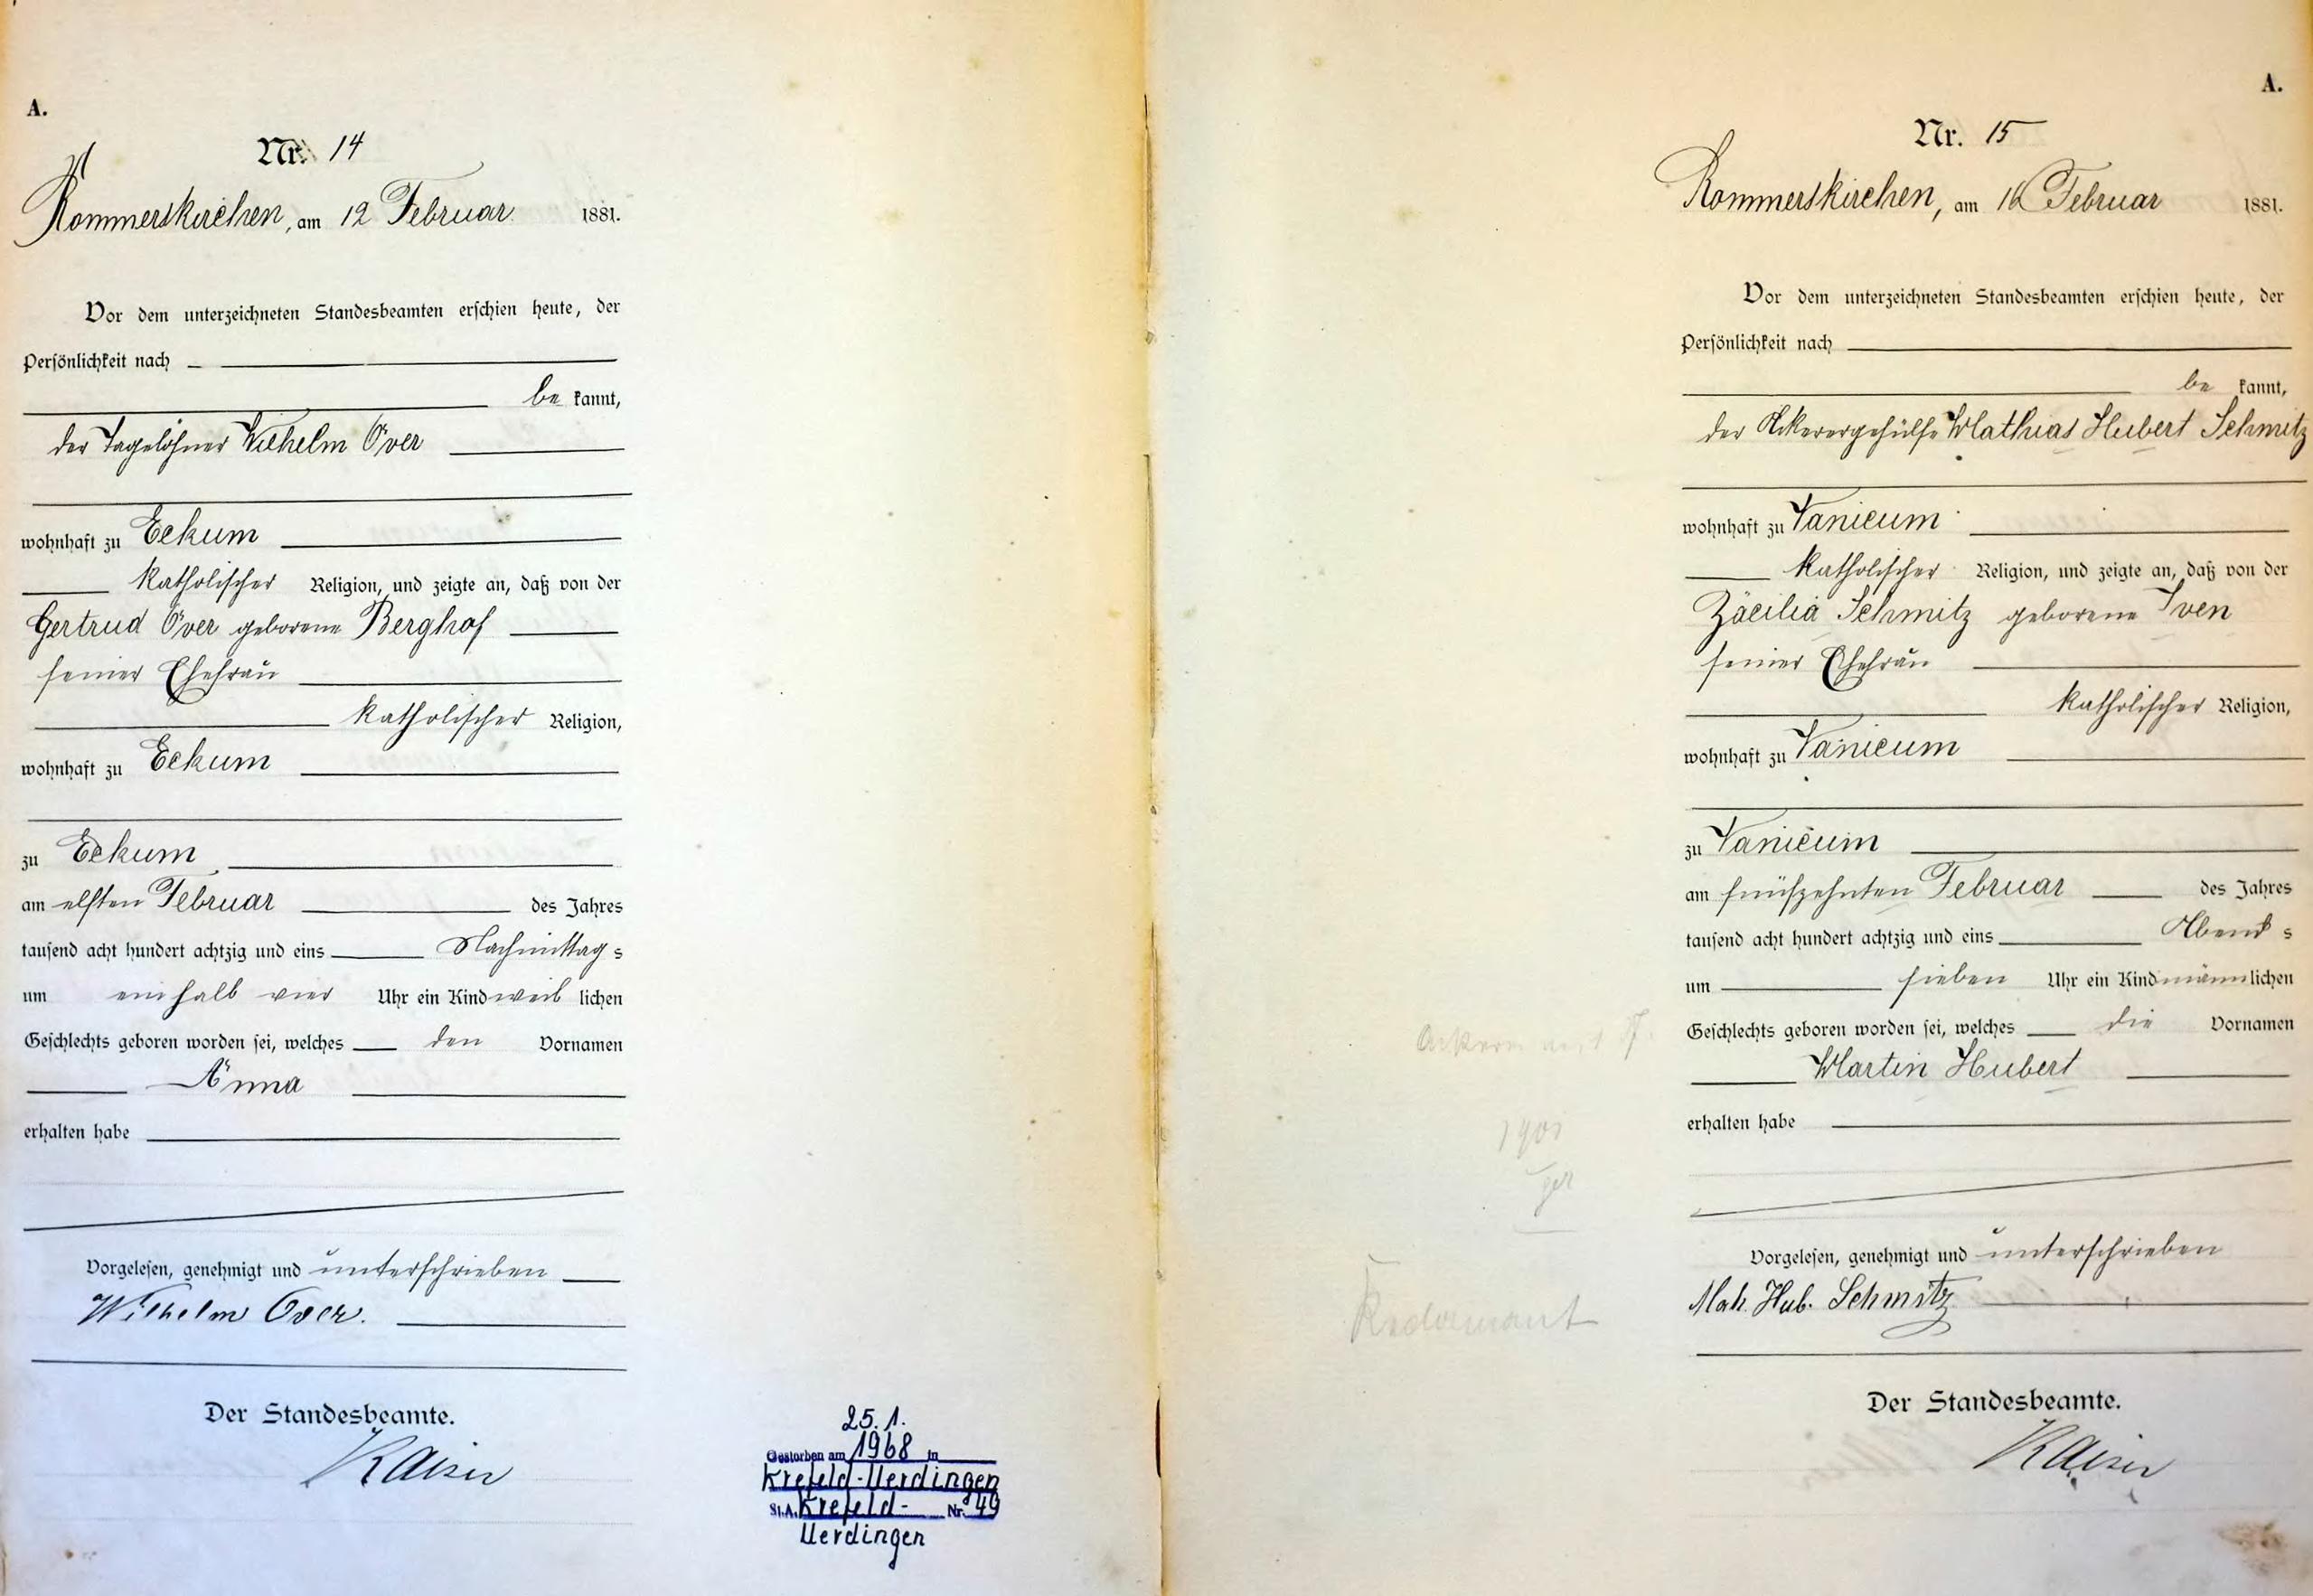 A.
Nr. 14
Rommerskirchen, am 12 Februar 1881.
Vor dem unterzeichneten Standesbeamten erschien heute, der
Persönlichkeit nach
be kannt,
der Tagelöhner Wilhelm Over
wohnhaft zu Eckum
katholischer Religion, und zeigte an, daß von der
Gertrud Over geborene Berghof
seiner Ehefrau
katholischer Religion,
wohnhaft zu Eckum
zu Eckum
am elften Februar des Jahres
tausend acht hundert achtzig und eins Nachmittag s
um ein halb vier Uhr ein Kind weib lichen
Geschlechts geboren worden sei, welches den Vornamen
Anna
erhalten habe
Vorgelesen, genehmigt und unterschrieben
Wilhelm Over.
Der Standesbeamte.
Kaiser
25. 1.
Gestorben am 1968 in
Krefeld-Uerdingen
St.A. Krefeld- Nr. 49
Uerdingen
A.
Nr. 15
Rommerskirchen, am 16 Februar 1881.
Vor dem unterzeichneten Standesbeamten erschien heute, der
Persönlichkeit nach
be kannt,
der Ackerergehülfe Mathias Hubert Schmitz
wohnhaft zu Vanicum
katholischer Religion, und zeigte an, daß von der
Zäcilia Schmitz geborene Iven
seiner Ehefrau
katholischer Religion,
wohnhaft zu Vanicum
zu Vanicum
am fünfzehnten Februar des Jahres
tausend acht hundert achtzig und eins Abend s
um sieben Uhr ein Kind männ lichen
Geschlechts geboren worden sei, welches die Vornamen
Martin Hubert
erhalten habe
Vorgelesen, genehmigt und unterschrieben
Mah. Hub. Schmitz
Der Standesbeamte.
Kaiser
1901